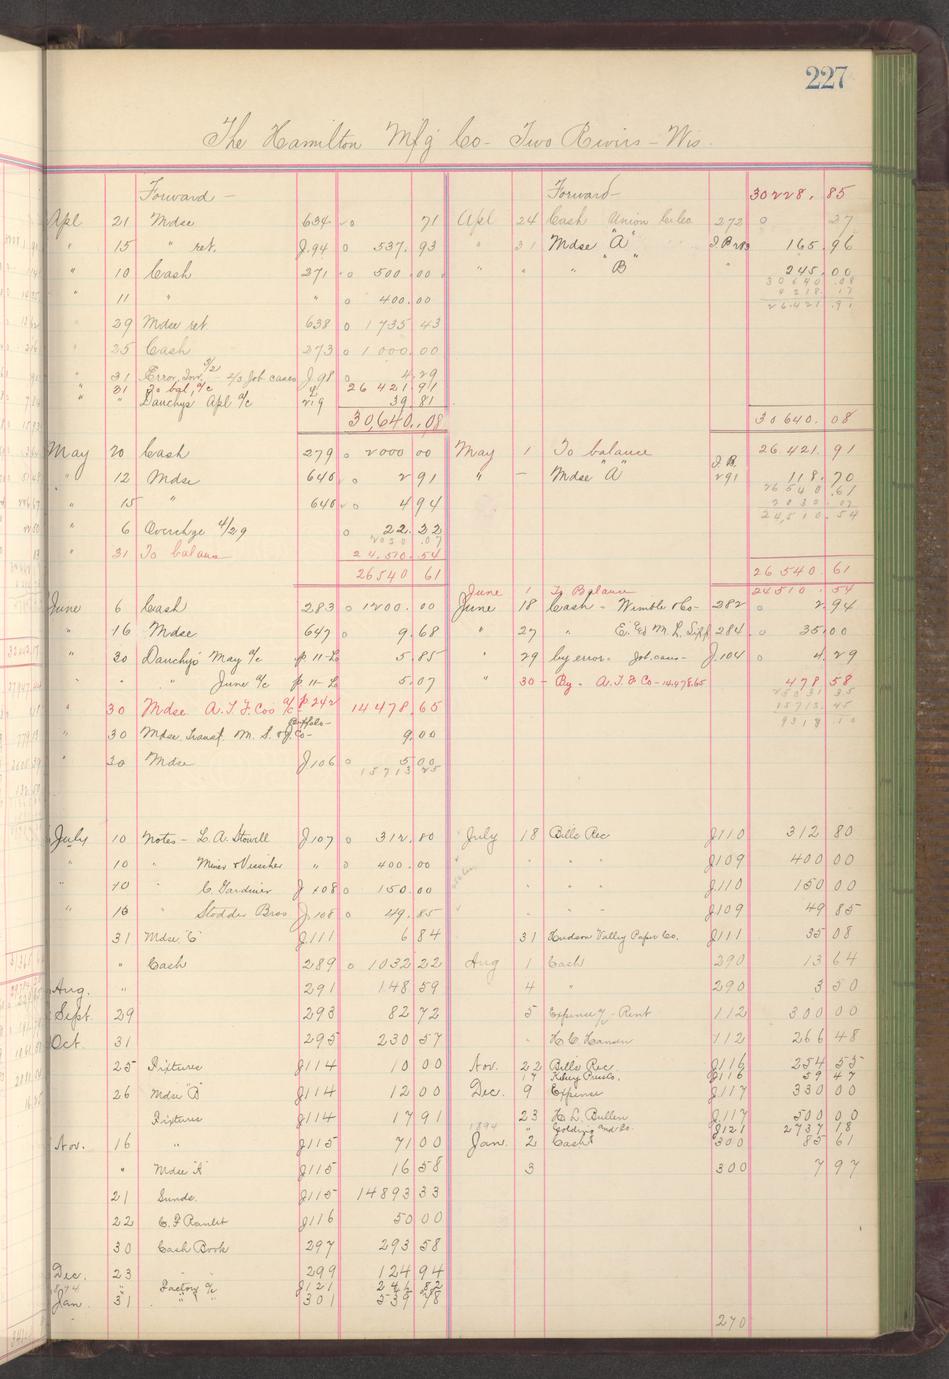 227
The Hamilton Mfg Co - Two Rivirs - Wis.
Forward -
Apl 21 Mdse 634 o 71
" 15 " ret. J.94 o 537.93
" 10 Cash 271 o 500.00
" 11 " " o 400.00
29 Mdse ret. 638 o 1735 43
25 Cash 273 o 1000.00
" 31 Error, Inv. 3/21 - 2/3 Job cases J.98 o 4.29
" 31 To bal, a/c 26 421 91
" " Dauchys Apl a/c 219 39 81
30,640.08
May 20 Cash 279 o 2000 00
" 12 Mdse 640 o 2 91
" 15 " 640 o 4 94
6 Overchge 4/29 o 22.32
2030.07
" 31 To balanc 24,510.54
26540 61
June 6 Cash 283 o 1200.00
" 16 Mdse 647 o 9.68
" 30 Dauchys May a/c p 11-L 5.85
" " June a/c p 11-L 5.07
" 30 Mdse A.T.F. Cos a/c p 242 14478.65
" 30 Mdse. Transf. M. S. & J. Co - Buffalo - 9.00
" 30 Mdse J106 o 5 00
15713 25
July 10 Notes - L. A. Stowell J107 o 312.80
" 10 " " o 400.00
" 10 " C. Gardiner J108 o 150.00
" 10 " Stodder Bros J.108 o 49.85
31 Mdse "C" J111 6 84
" Cash 289 o 1032 22
Aug. " 291 148 59
Sept. 29 293 82 72
Oct. 31 295 230 57
25 Fixtures J114 10 00
26 Mdse "B" J114 12 00
Fixtures J114 17 91
Nov. 16 " J115 71 00
" Mdse "A" J115 16 58
21 Sunds. J115 14893 33
22 C. F. Ranlet J116 50 00
30 Cash Book 297 293 58
Dec. 23 299 124 94
1894 " Factory a/c J121 246 82
Jan. 31 " " 301 539 78
Forward - 30228.85
Apl 24 Cash Union 272 o 27
" 31 Mdse "A" 165.96
" " " "B" " 245.00
30640.08
4218.17
26421.91
30640.08
May 1 To balance 26.421.91
" - Mdse "A" J.B. 291 118.70
26540.61
2030.07
24,510.54
26540.61
June 1 To Balance 24510.54
June 18 Cash - Wimble & Co - 282 o 2.94
" 27 " 284 o 35.00
" 29 by error - Job cases - J.104 o 4.29
" 30 - By - A.T.F. Co - 14.478.65 478 58
15713.45
9318.10
July 18 Bills Rec J110 312 80
" " " J109 400 00
" " " J110 150 00
" " " J109 49 85
31 Hudson Valley Paper Co. J111 35 08
Aug 1 Cash 290 13 64
4 " 290 3 50
5 Expense a/c - Rent 112 300 00
" H. C. Hansen 112 266 48
Nov. 22 Bills Rec. J116 254 55
17 J116 59 47
Dec. 9 Expense J117 330 00
23 H. L. Bullen J117 500 00
1894 " Golding and Co. J121 2737 18
Jan. 2 Cash 300 85 61
3 300 7 97
270